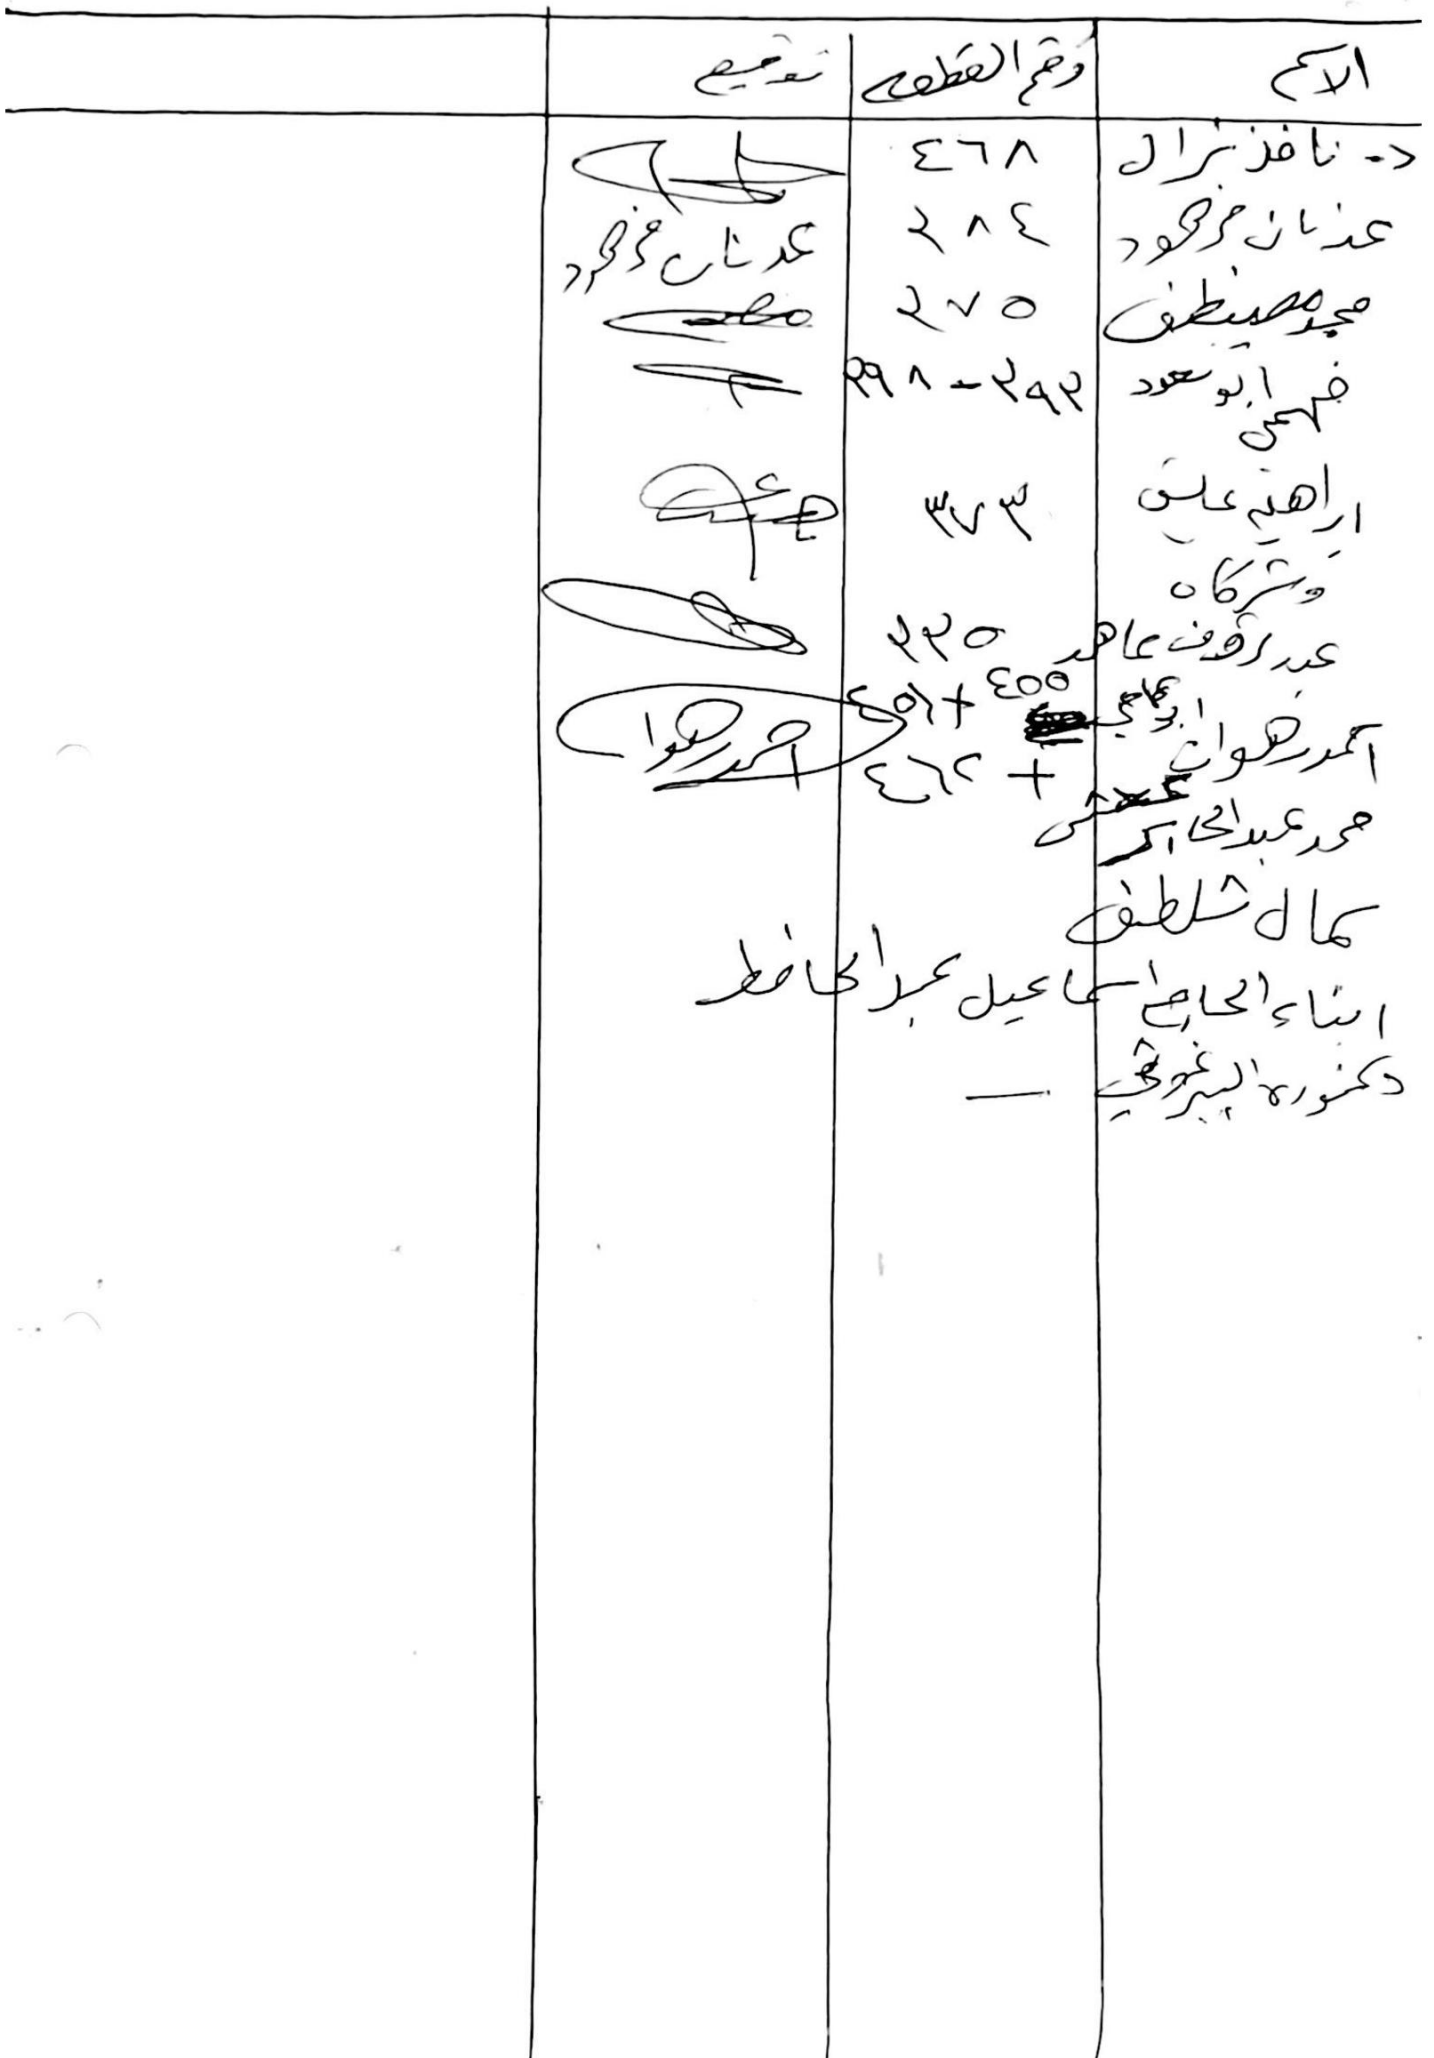 الاسم رقم القطعه توقيع
د. نافذ نزال ٤٦٨
عدنان فرحود ٢٨٤ عدنان فرحود
محمد مصطفى ٢٧٥
فهمي ابو سعود ٣٩٣ - ٣٩٨
ابراهيم عايش ٣٧٣
وشركاه
عبد رؤوف عاهد ٢٣٥
ابو ٤٥٥ + ٤٥٦
احمد رهوان + ٤٦٢ احمد رهوا
محمد عبد الجابر
كمال شلطف
ابناء الحاج اسماعيل عبد الحافظ
دكتوره البرغوثي —